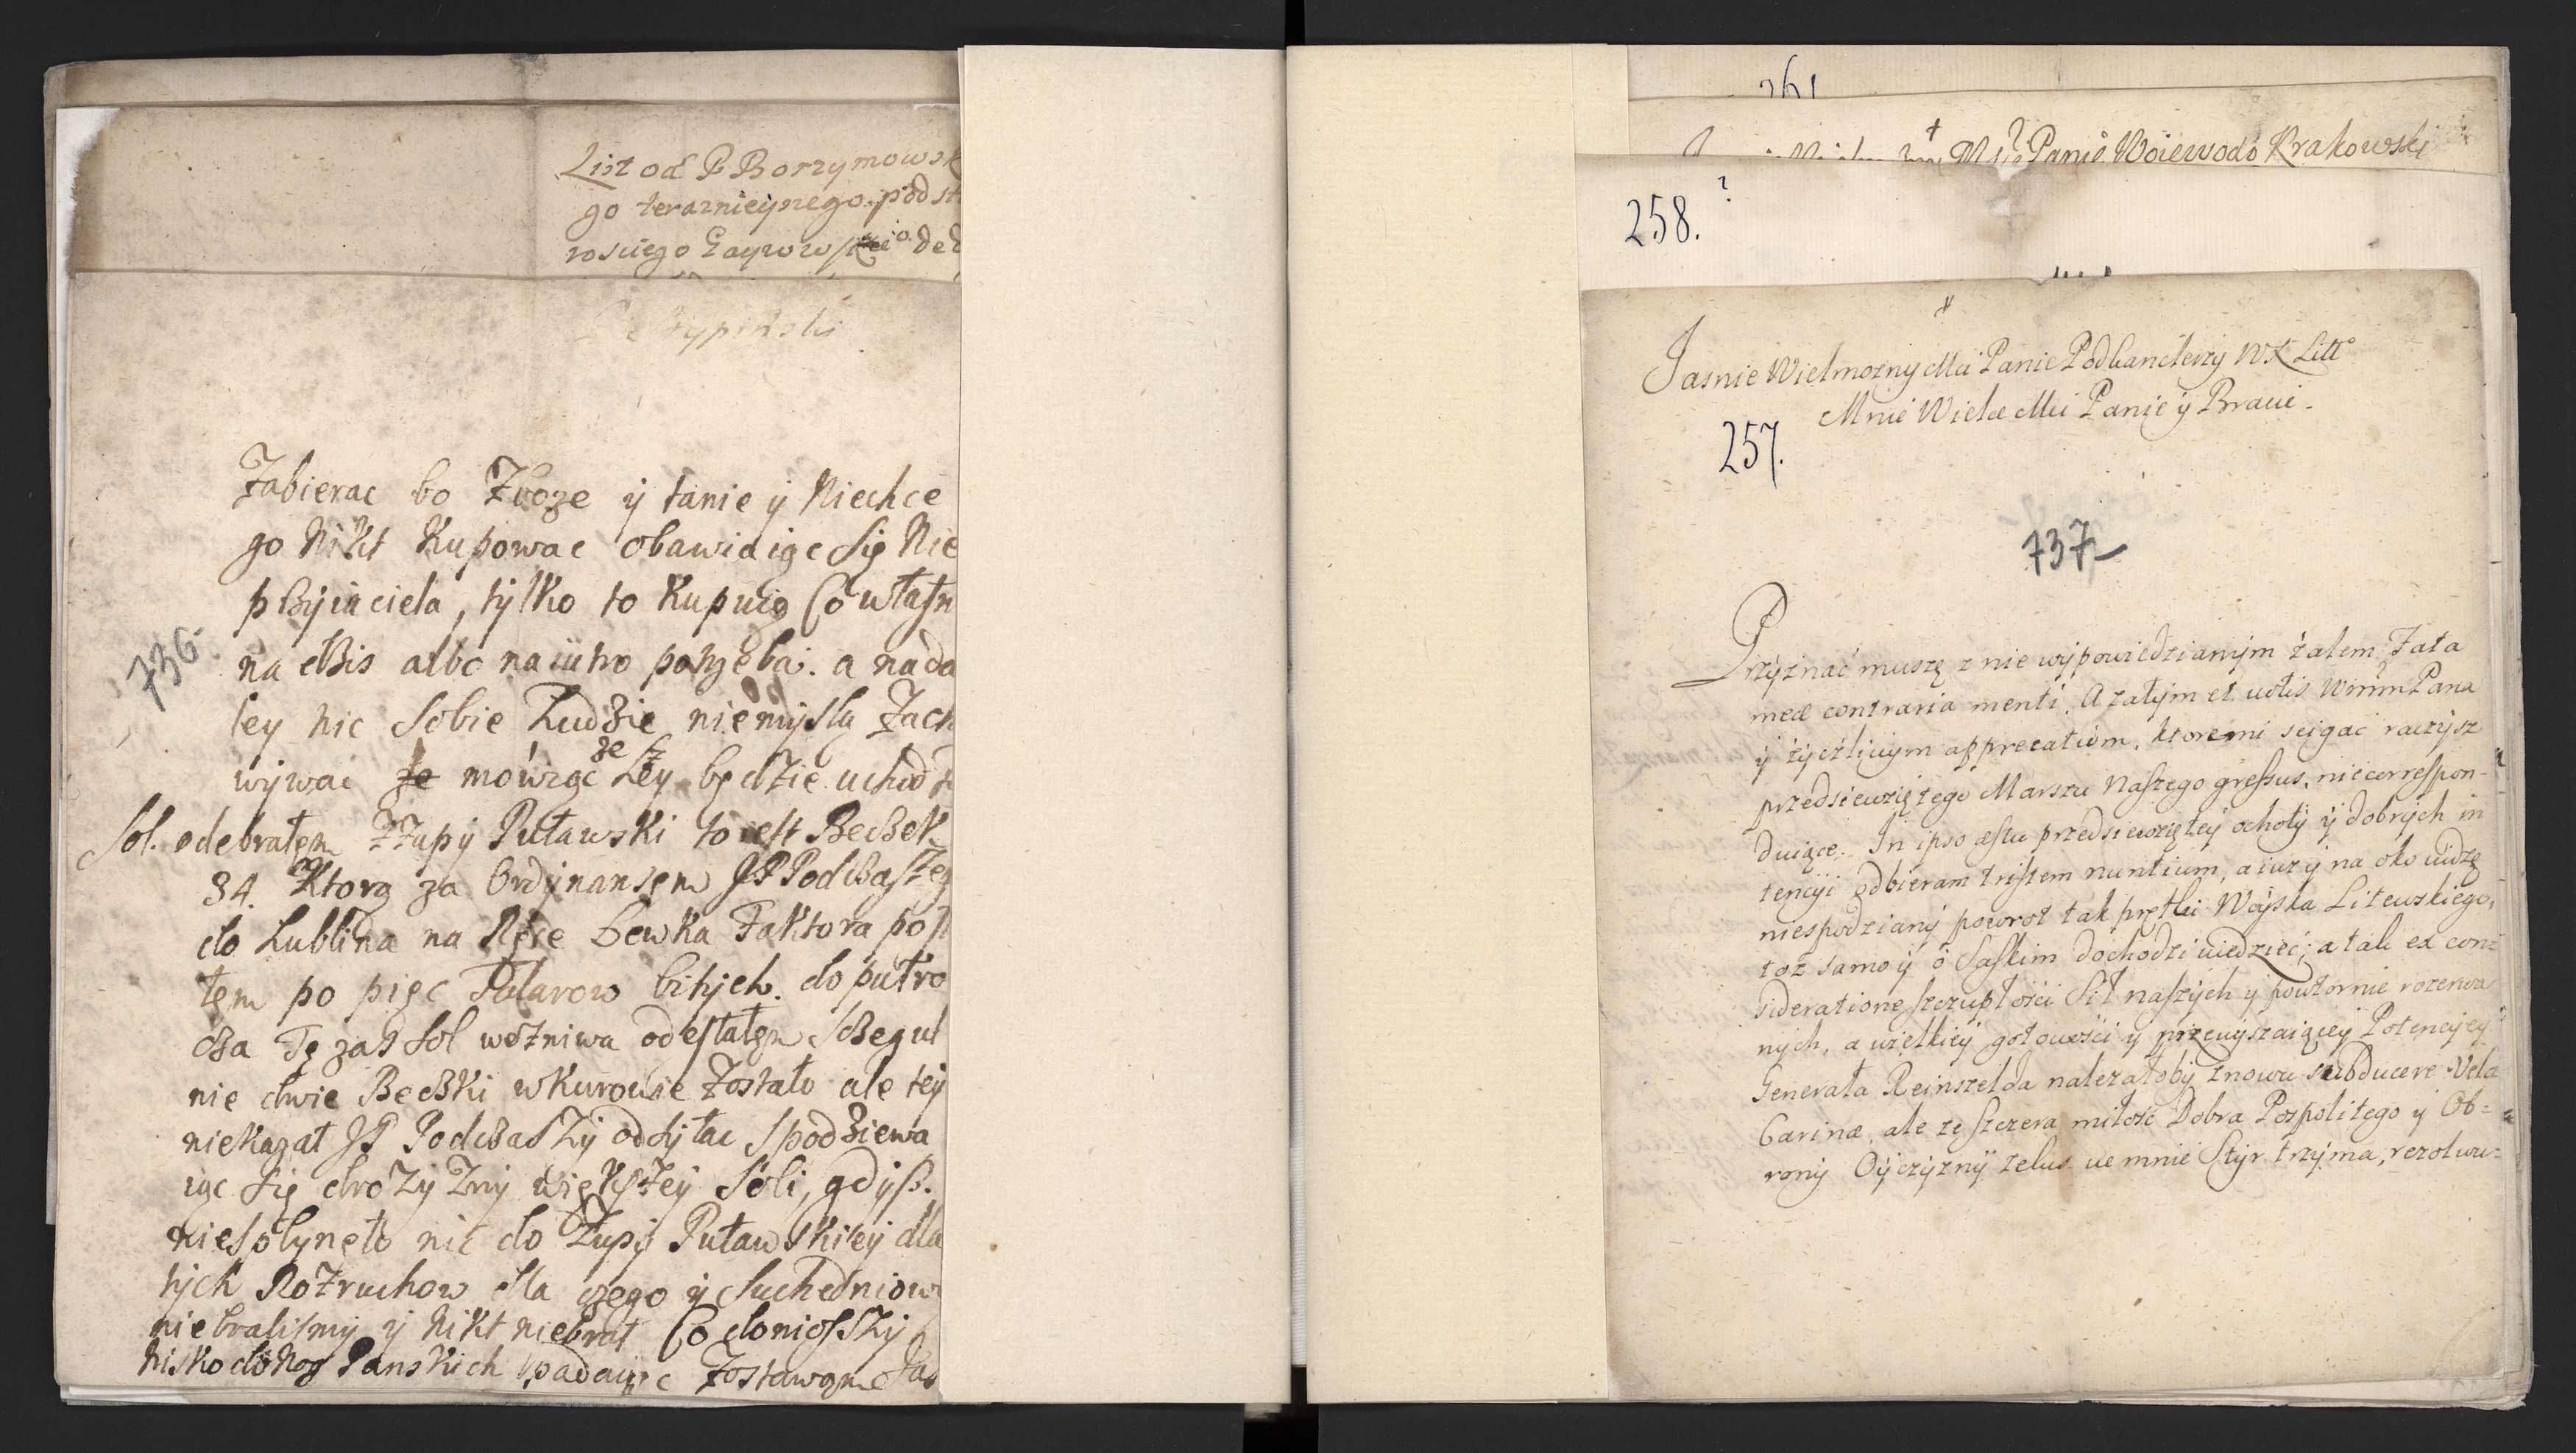 List od P Borzymowsk
go teraznieyszego pod st
rosciego Gayowskie⁰ de
Zabierac bo Zboze ÿ tanie ÿ Niechce
go Nikt Kupowac obawiaiąc Się Nie
przÿiaciela, tÿlko to Kupuią Co własn
na dzis albo na iutro potrzeba. a nada
ley nic Sobie Ludzie niemyslą Zach
wÿwac mówiąc ze Lzey będzie uchod
Sol. odebrałem zZupÿ Puławski to iest Beczek
34. Ktorą za Ordÿnansem JP Podczaszeg
do Lublina na Ręce Lewka Faktora posł
tem po pięc Talarow bitÿch. do putro
cza Tę zas Sol wożniwa odesłałem Szegul
nie dwie Beczki wKurowie Zostało ale teÿ
niekazał JP Podczaszÿ odsÿłac Spodziewa
iąc Się droZÿZnÿ większeÿ Soli, gdÿsz.
niespłynęło nic do Zupÿ Puławskieÿ dla
tÿch Rozruchow dla czego ÿ Suchedniow
niebralismÿ ÿ Nikt niebrał Co donioszszÿ
nisko do Nog Panskich upadaiąc Zostawam Jas
736.
261
Panie Woiewodo Krakowski
258.
Jasnie Wielmoznÿ Mci Panie Podkanclerzÿ WX Litt⁰
Mnie Wielce Mci Panie ÿ Bracie.
257.
737
Przÿznać muszę z nie wÿpowiedzianÿm żalem Fata
meæ contraria menti. A zatÿm et votis Wmm Pana
ÿ żÿczliwÿm apprecatiom, ktoremi scigac raczÿsz
przedsiewziętego Marszu Naszego gressus, niecorrespon-
duiące. In ipso æstu przedsiewzięteÿ ochotÿ ÿ dobrÿch in
tencÿi odbieram tristem nuntium, a iuz ÿ na oko widzę
niespodzianÿ powrot tak prętki Woÿska Litewskiego,
toż samo ÿ o Saskim dochodzi wiedzieć; a tak ex con-
sideratione szczupłości Sił naszÿch ÿ powtornie rozerwa
nÿch, a wielkieÿ gotowości ÿ przewÿszaiąceÿ Potencÿeÿ
Generała Reinszelda nalezałobÿ znowu subducere Vela
Carinæ, ale zę szczera miłosc Dobra Pospolitego ÿ Ob-
ronÿ Oÿczÿznÿ zelus we mnie Stÿr trzÿma, rezolwu-